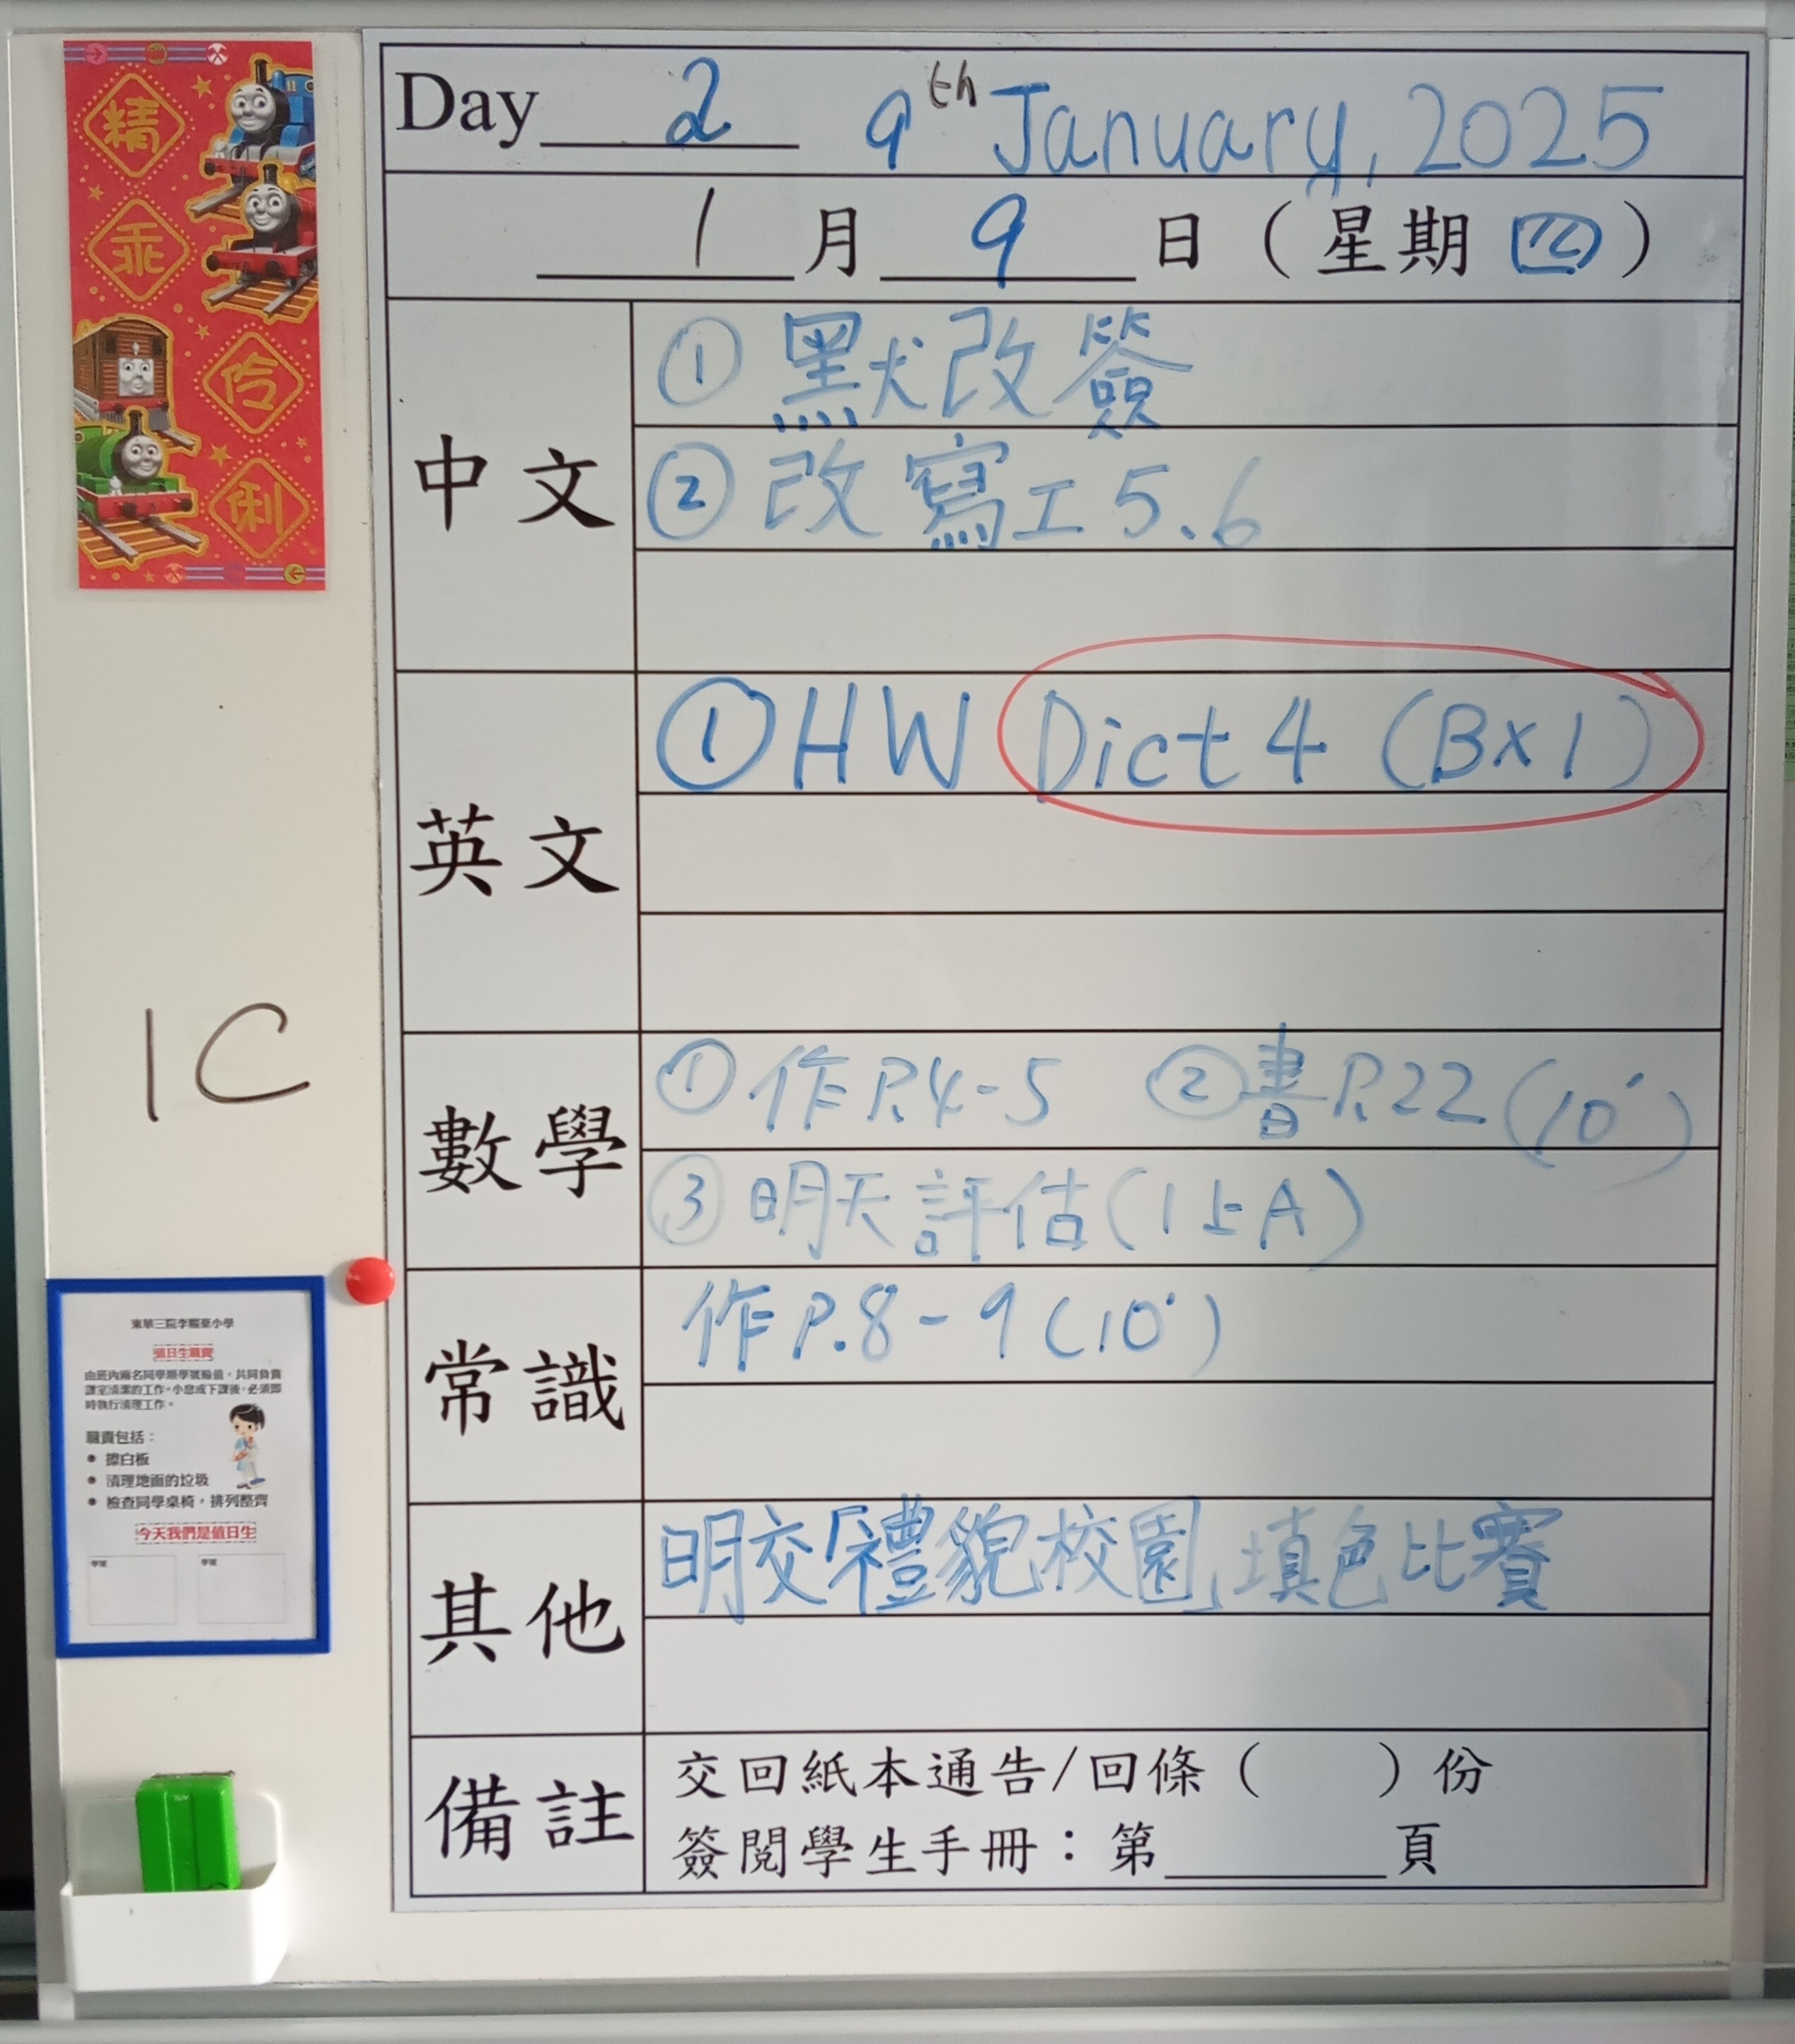 精
乖
伶
俐
Day 2 9th January, 2025
1 月 9 日（星期 四）
中文
① 默改簽
② 改寫工5、6
英文
① HW Dict 4 (B×1)
數學
① 作P.4-5 ② 書P.22 (10')
③ 明天評估(1上A)
常識
作P.8-9(10')
其他
明交「禮貌校園」填色比賽
備註
交回紙本通告/回條（ ）份
簽閱學生手冊：第 頁
1C
值日生職責
由班內兩名同學順學號輪值，共同負責
課室清潔的工作。小息或下課後，必須即
時執行清理工作。
職責包括：
• 擦白板
• 清理地面的垃圾
• 檢查同學桌椅，排列整齊
今天我們是值日生
學號 學號